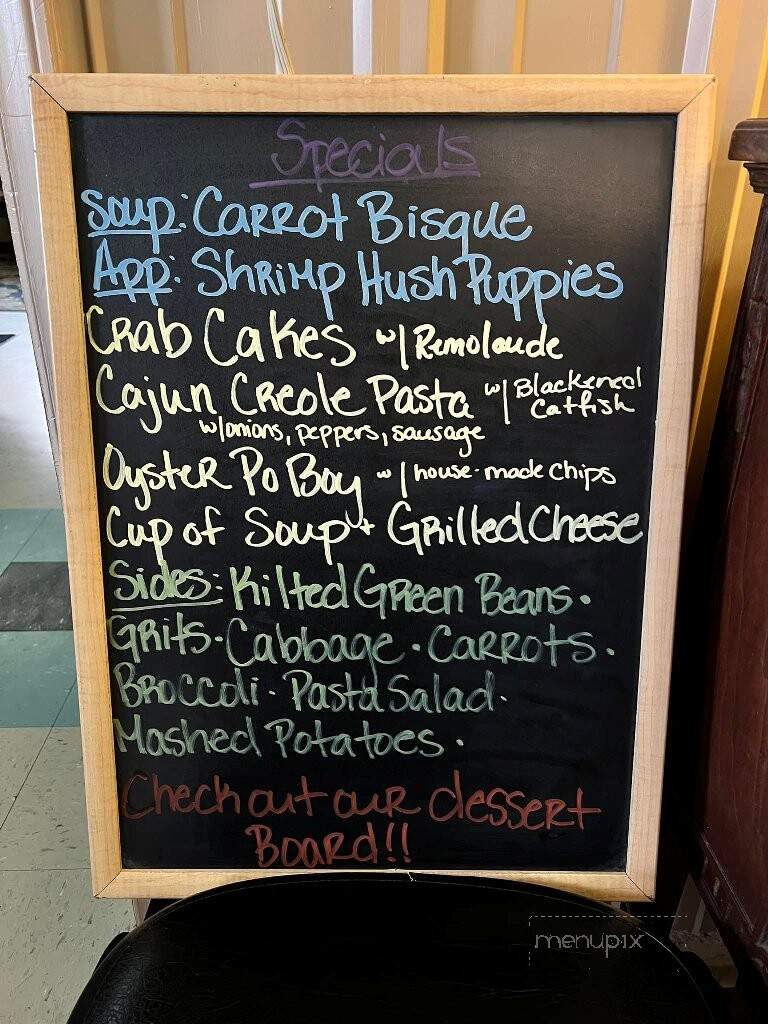 Specials
Soup: Carrot Bisque
App: Shrimp Hush Puppies
Crab Cakes w/ Remolaude
Cajun Creole Pasta w/ Blackened Catfish
w/onions, peppers, sausage
Oyster Po Boy w/ house-made chips
Cup of Soup + Grilled Cheese
Sides: Kilted Green Beans.
Grits. Cabbage. Carrots.
Broccoli. Pasta Salad.
Mashed Potatoes.
Check out our dessert
Board!!
menupix